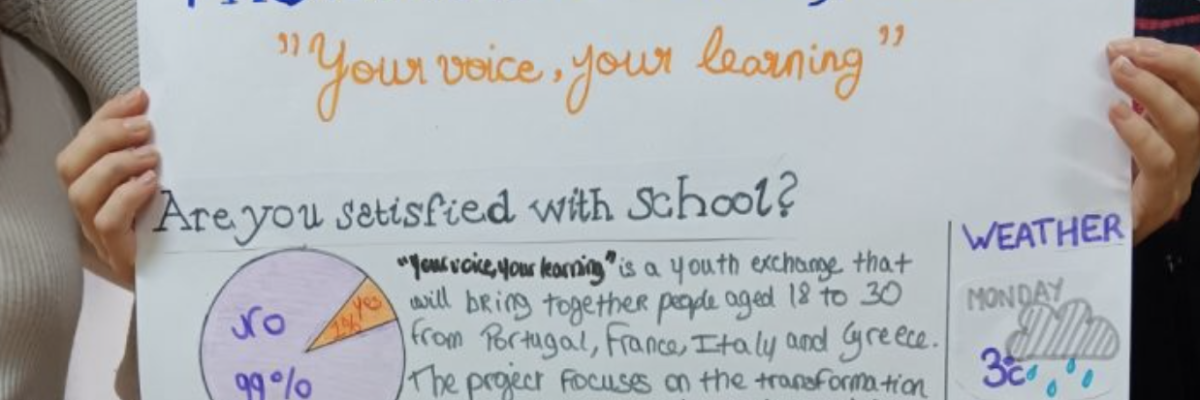 "Your voice, your learning"
Are you satisfied with School?
"Your voice, your learning" is a youth exchange that
will bring together people aged 18 to 30
from Portugal, France, Italy and Greece.
The project focuses on the transformation
No
99%
yes
1%
WEATHER
MONDAY
3c